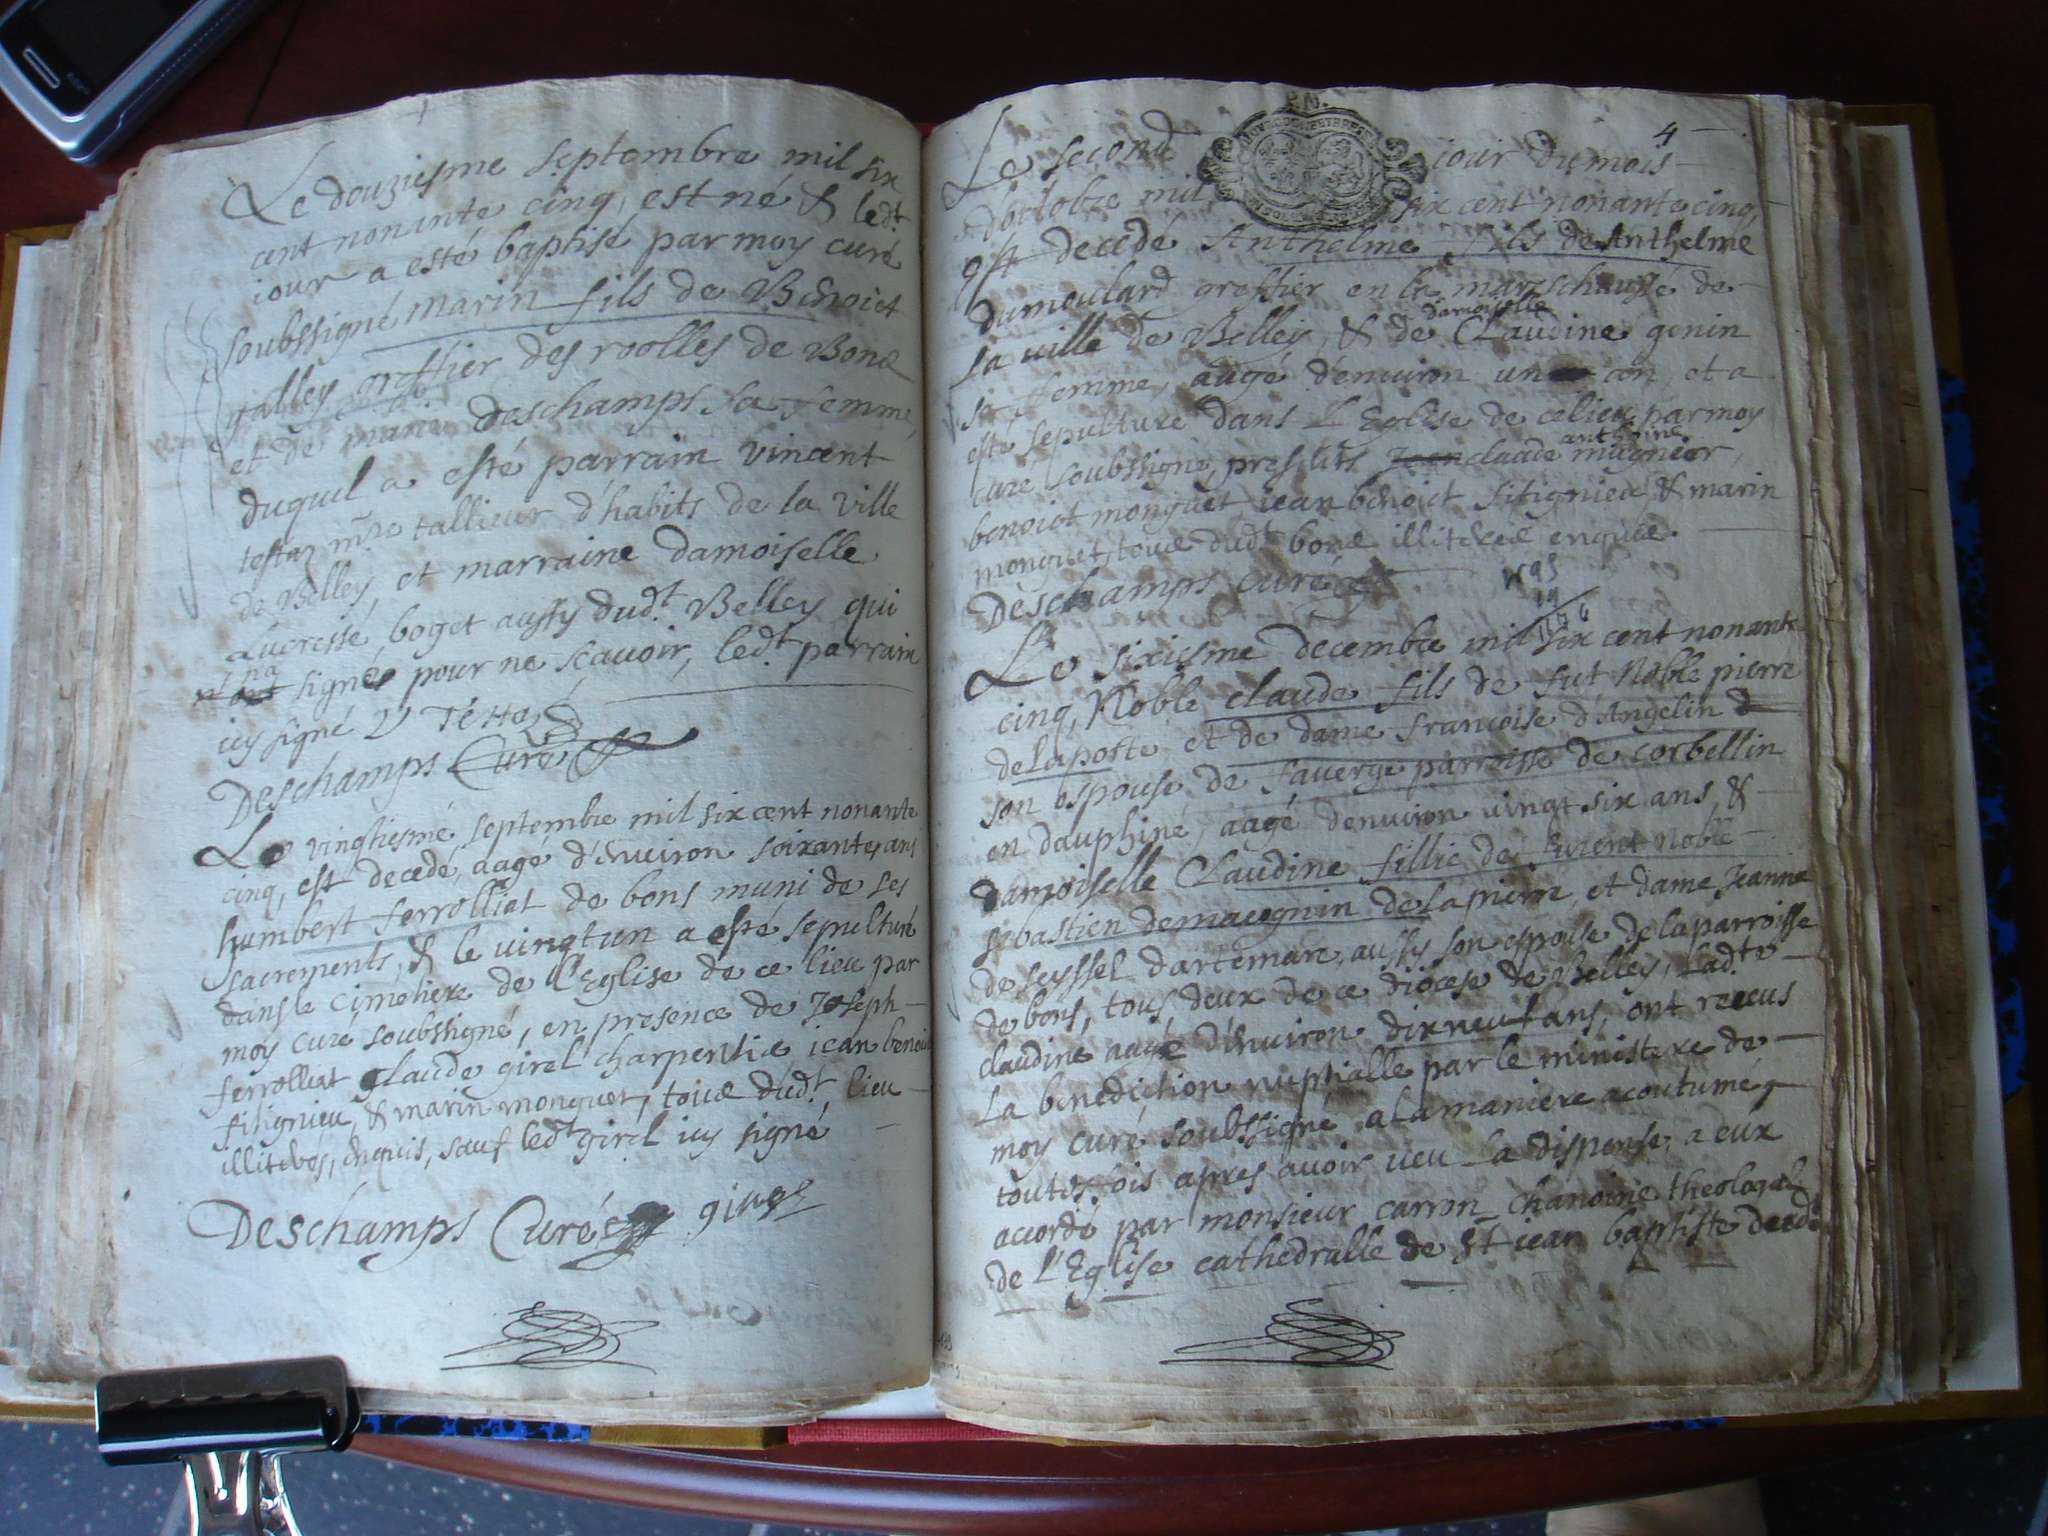 Le douziesme septembre mil six
cent nonante cinq, est né & led.t
iour a esté baptisé par moy curé
soubssigné marin fils de Benoict
galley greffier des roolles de Bons
et de marie deschamps sa femme,
duquel a esté parrain vincent
testaz m.re tallieur d'habits de la ville
de Belley, et marraine damoiselle
Lucresse boget aussy dud.t Belley qui
n'ha signé pour ne scavoir, led.t parrain
icy signé V Testaz
Deschamps Curé
Le vingtiesme septembre mil six cent nonante
cinq, est decedé, aagé d'environ soixante ans
humbert ferrolliat de bons muni de ses
sacrements, & le vingt un a esté sepulturé
dans le cimetiere de l'Eglise de ce lieu par
moy curé soubssigné, en presence de Joseph
ferrolliat claude girel charpentié iean benoict
fitignieu, & marin monguet, tous dud.t lieu
illiterés, enquis, sauf led.t girel icy signé
Deschamps Curé
4
Le second iour du mois
d'octobre mil six cent nonante cinq,
est decedé Anthelme fils de Anthelme
dumoulard greffier en la mareschaussé de
la ville de Belley, & de damoiselle Claudine genin
sa femme, augé d'enuiron un an, et a
esté sepulturé dans l'Eglise de ce lieu par moy
curé soubssigné, presents claude anthoine mugnier,
benoict monguet, iean benoict fitignieu & marin
monguet, tous dud.t bons illiterés enquis.
Deschamps curé
Le sixiesme decembre mil six cent nonante
cinq, Noble claude fils de fut Noble pierre
delaposte et de dame francoise d'Angelin
son espouse de faverge parroisse de corbellin
en dauphiné, aagé denuiron vingt six ans, &
damoiselle Claudine fillie de furent noble
sebastien demacognin delapierre, et dame Jeanne
de seyssel dartemare, aussy son espouse de la parroisse
de bons, tous deux de ce diocese de Belley, lad.te
claudine augé d'enuiron dix neuf ans, ont receus
La benediction nuptialle par le ministere de
moy curé soubssigné a la maniere acoutumé,
toutesfois apres avoir veu la dispense, a eux
accordé par monsieur carron chanoine theologal
de l'Eglise cathedralle de St iean baptiste